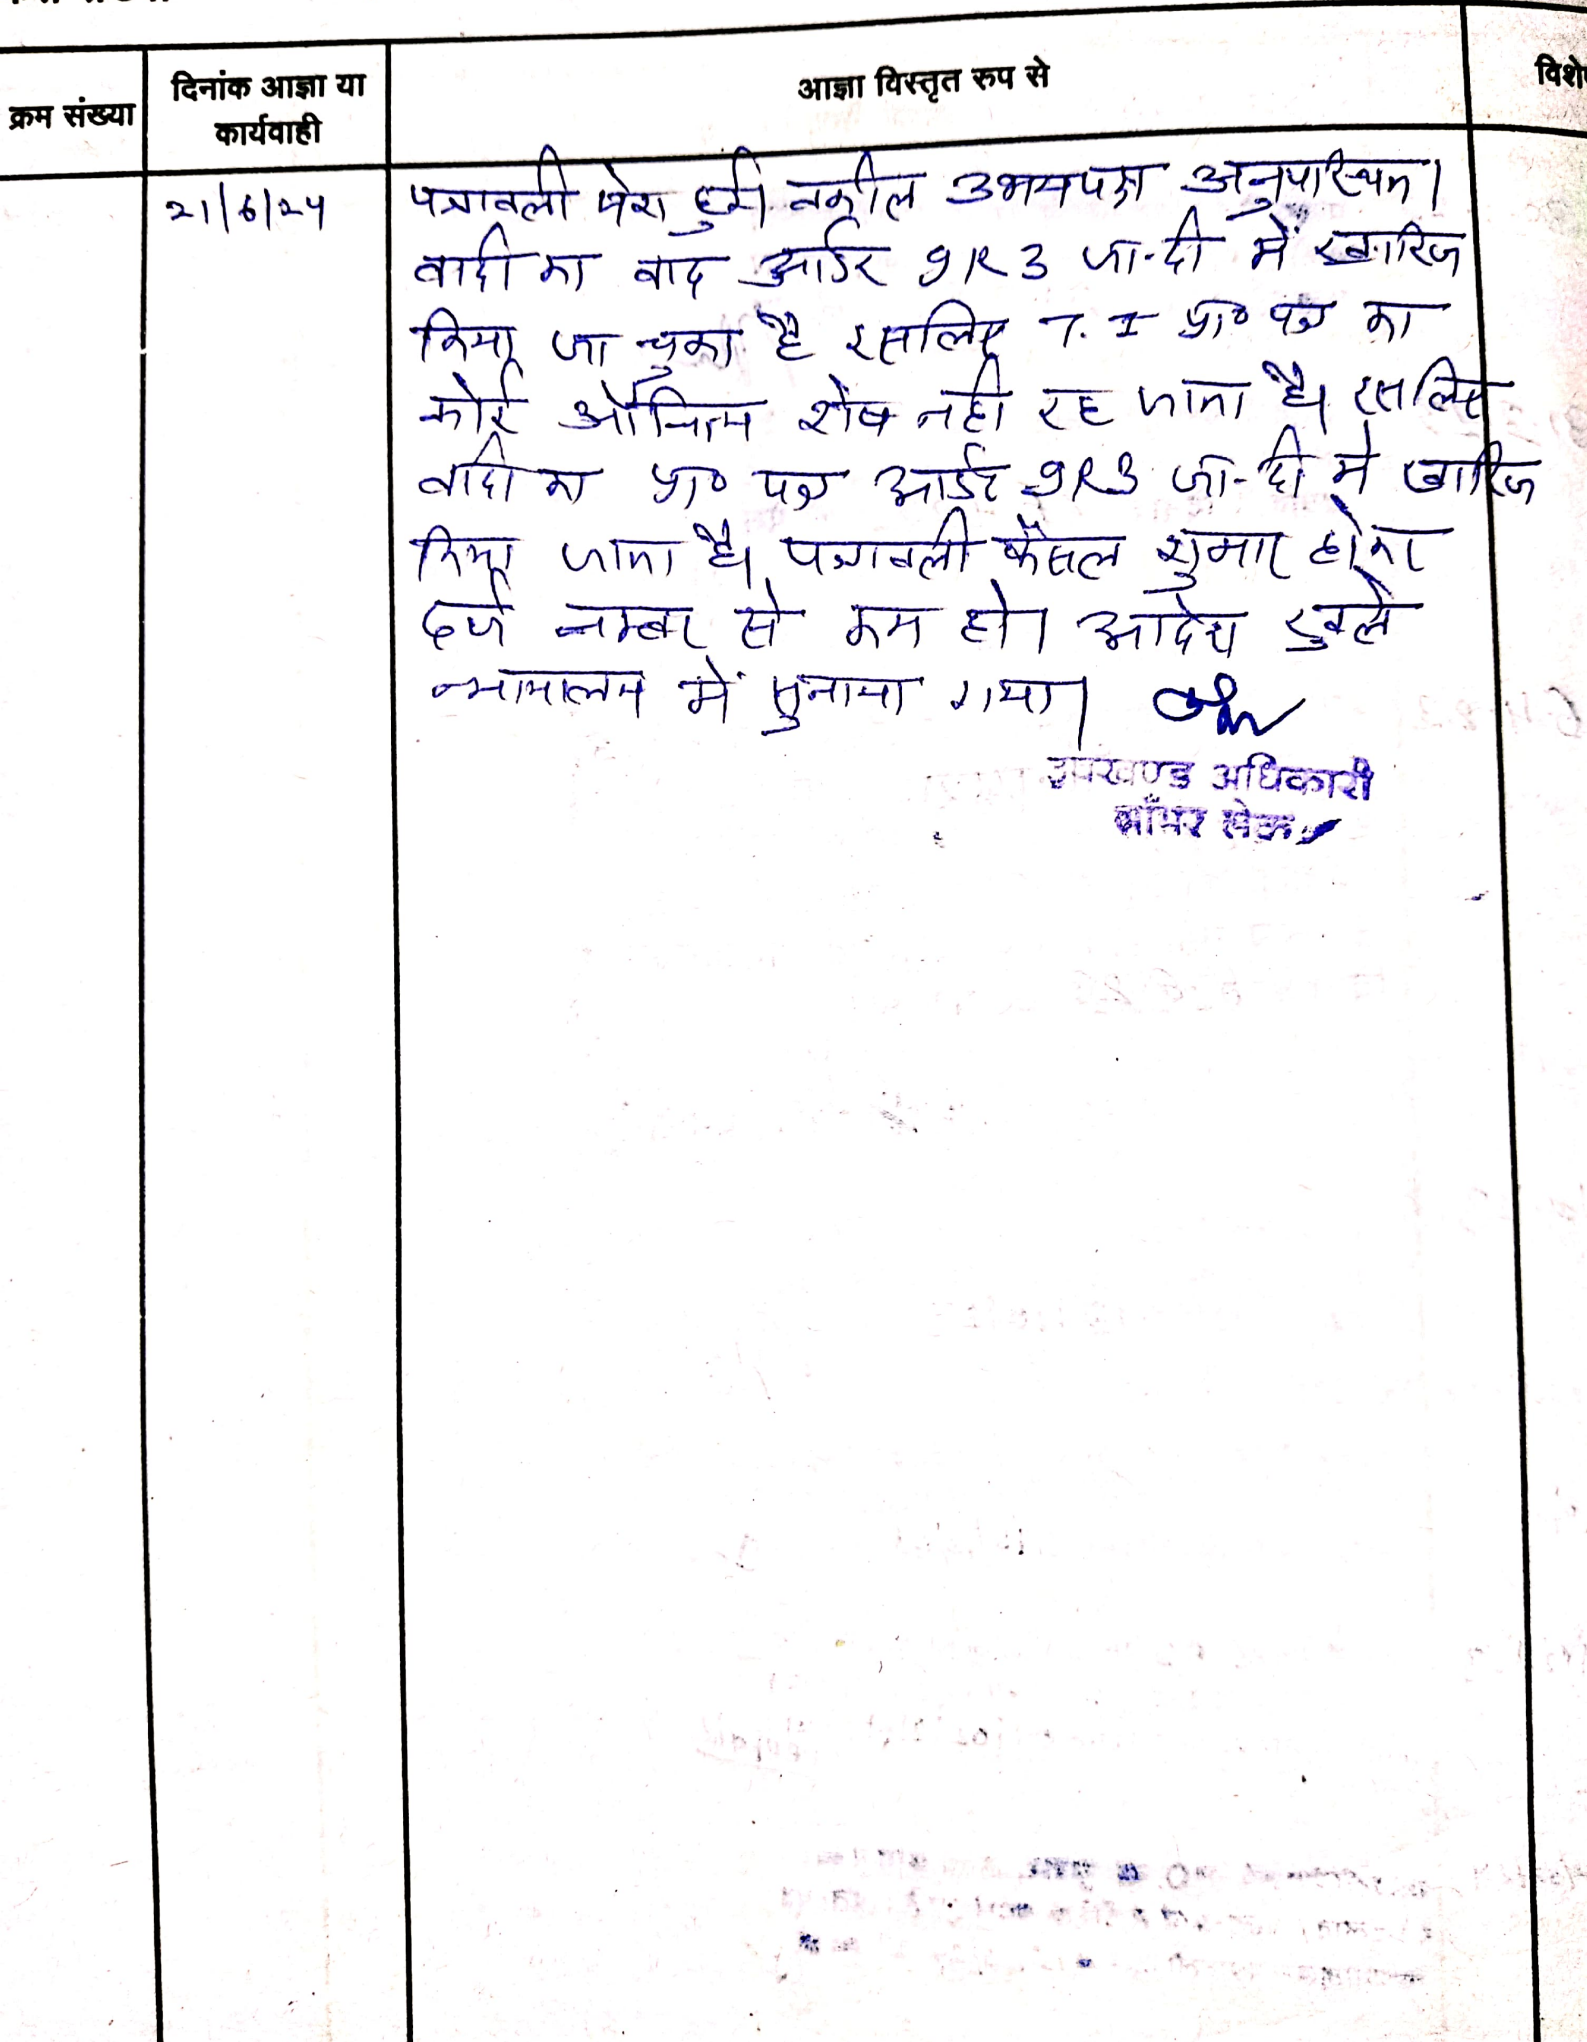 क्रम संख्या
दिनांक आज्ञा या
कार्यवाही
आज्ञा विस्तृत रुप से
21/6/24
पत्रावली पेश हुई। वकील उभयपक्ष अनुपस्थित।
वादी का वाद आर्डर 9 R 3 जा-दी में खारिज
किया जा चुका है इसलिए T.I प्रा० पत्र का
कोई औचित्य शेष नही रह जाता है। इसलिए
वादी का प्रा० पत्र आर्डर 9 R 3 जा-दी मे खारिज
किया जाता है। पत्रावली फैसल शुमार होकर
दर्ज नम्बर से कम हो। आदेश खुले
न्यायालय में सुनाया गया।
उपखण्ड अधिकारी
साँभर लेक